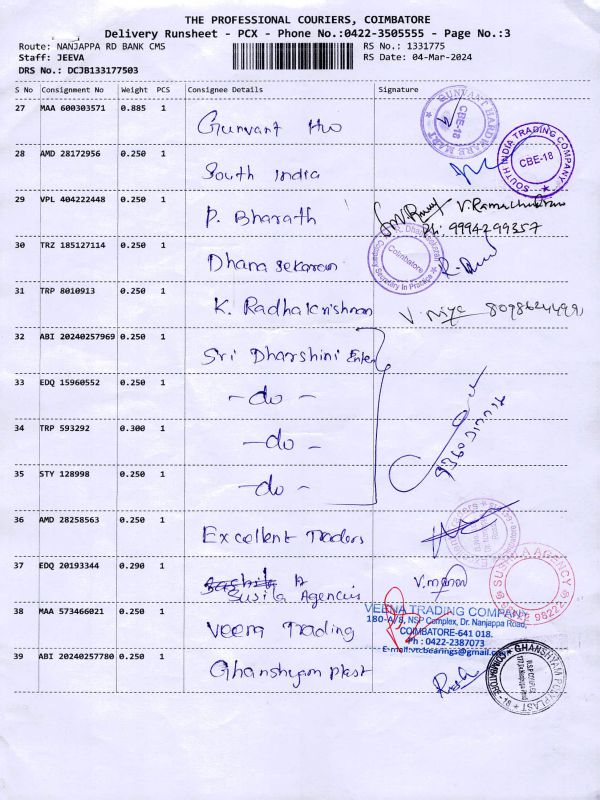 THE PROFESSIONAL COURIERS, COIMBATORE
Delivery Runsheet - PCX - Phone No.:0422-3505555 - Page No.:3
Route: NANJAPPA RD BANK CMS RS No.: 1331775
Staff: JEEVA RS Date: 04-Mar-2024
DRS No.: DCJB133177503
S No Consignment No Weight PCS Consignee Details Signature
27 MAA 600303571 0.885 1 Gunvant Hw
GUNVANT HARDWARE MART CBE-18
28 AMD 28172956 0.250 1 South India
SOUTH INDIA TRADING COMPANY CBE-18
29 VPL 404222448 0.250 1 P. Bharath V. Ramachandran
Ph: 9994299357
30 TRZ 185127114 0.250 1 Dhana sekaran
Company Secretary In Practice Coimbatore
31 TRP 8010913 0.250 1 K. Radhakrishnan
32 ABI 20240257969 0.250 1 Sri Dharshini Enter
33 EDQ 15960552 0.250 1 - do -
34 TRP 593292 0.300 1 - do -
35 STY 128998 0.250 1 - do -
36 AMD 28258563 0.250 1 Excellent Traders
37 EDQ 20193344 0.290 1 Susila Agencies
SUSILA AGENCY
38 MAA 573466021 0.250 1 Veena Trading
VEENA TRADING COMPANY
180-A/8, NSP Complex, Dr. Nanjappa Road,
COIMBATORE-641 018.
Ph : 0422-2387073
E-mail:vtcbearings@gmail.com
39 ABI 20240257780 0.250 1 Ghanshyam Plast
GHANSHYAM POLYPLAST